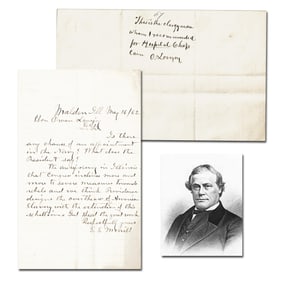 This is the clergyman
whom I recommended
for Hospital Chap
lain O Lovejoy
Malden Ill May 16/62
Hon Owen Lovejoy
Is there
any chance of an appointment
in the Navy? What does the
President say?
We are rejoicing in Illinois
that Congress inclines more and
more to some measure towards
and we think Providence
designs the overthrow of American
Slavery with the extinction of this
Rebellion.
Respectfully yours